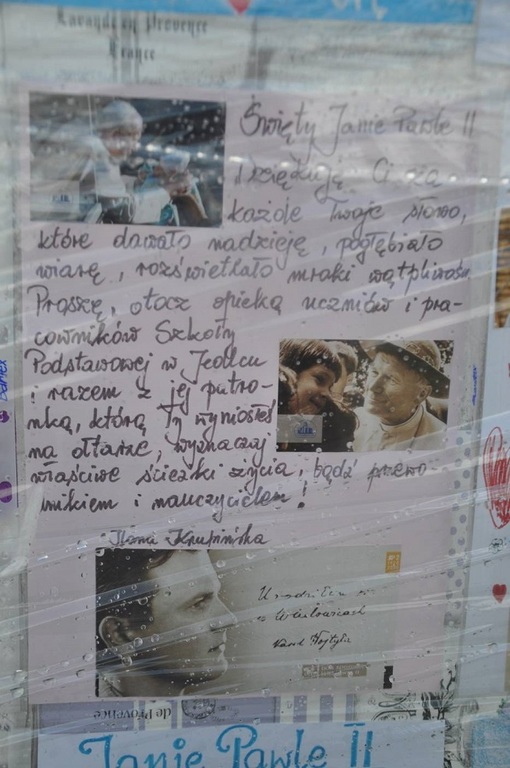 Lavande en Provence
France
Święty Janie Pawle II
Dziękuję Ci za
każde Twoje słowo,
które dawało nadzieję, pogłębiało
wiarę, rozświetlało mroki wątpliwości.
Proszę, otocz opieką uczniów i pra-
cowników Szkoły
Podstawowej w Jedlcu
i razem z jej patro-
nką, którą Ty wyniosłeś
na ołtarze, wyznaczaj
właściwe ścieżki życia, bądź przewo-
dnikiem i nauczycielem!
Ilona Krupińska
Urodziłem się
w Wadowicach
Karol Wojtyła
de Provence
Janie Pawle II